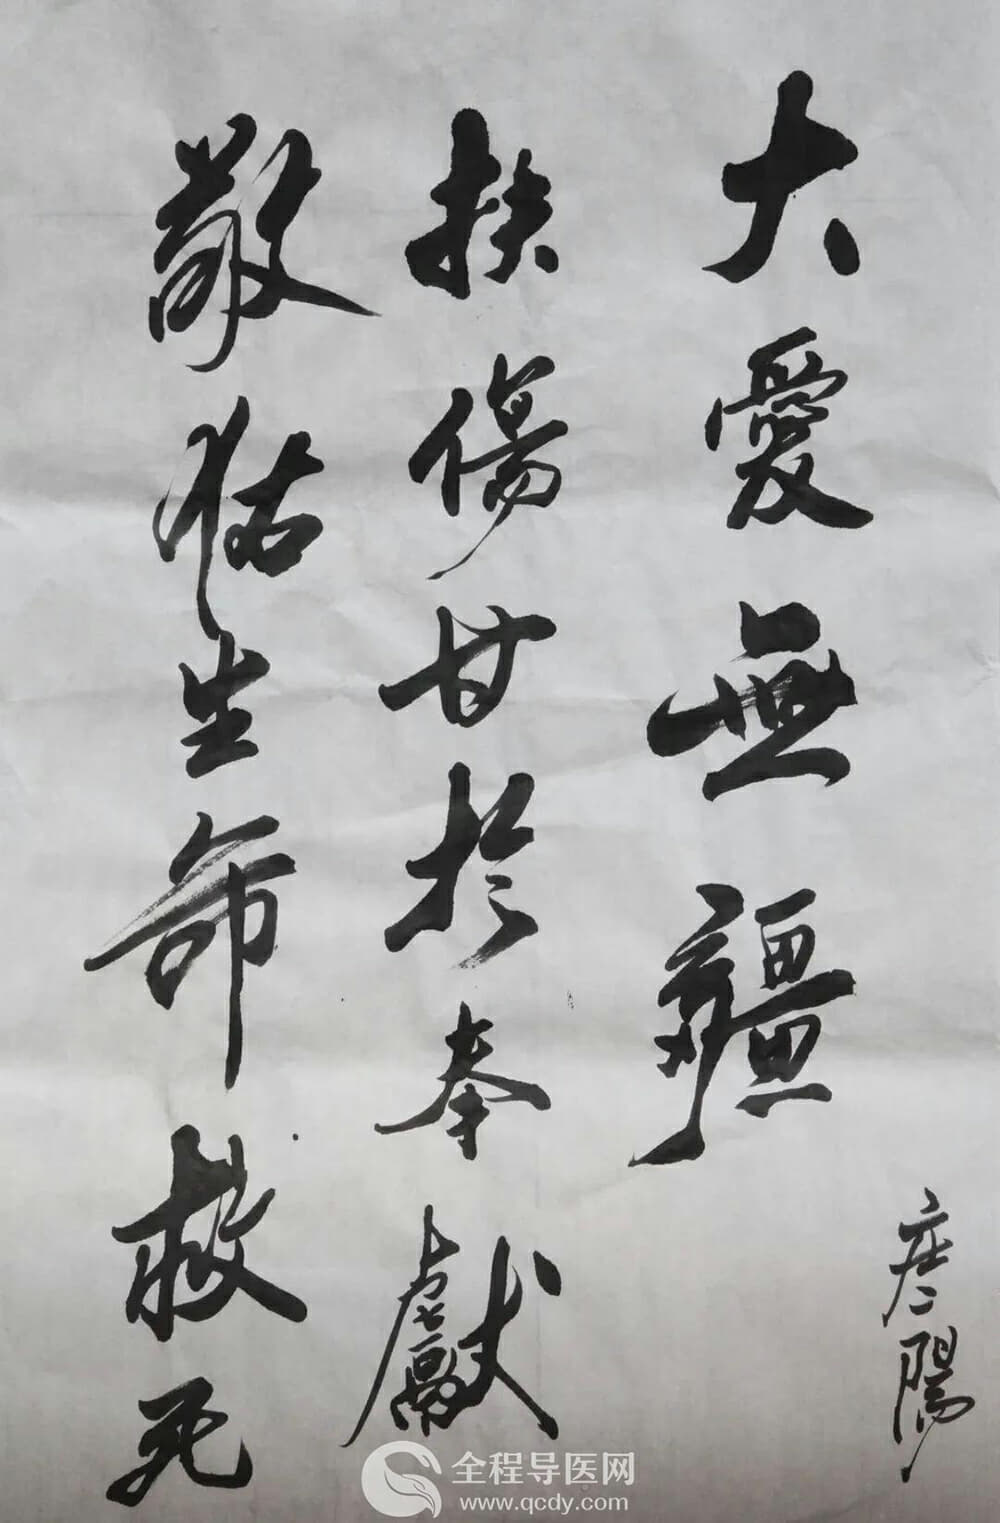 敬佑生命救死
扶傷甘於奉獻
大愛無疆
陽
全程导医网
www.qcdy.com